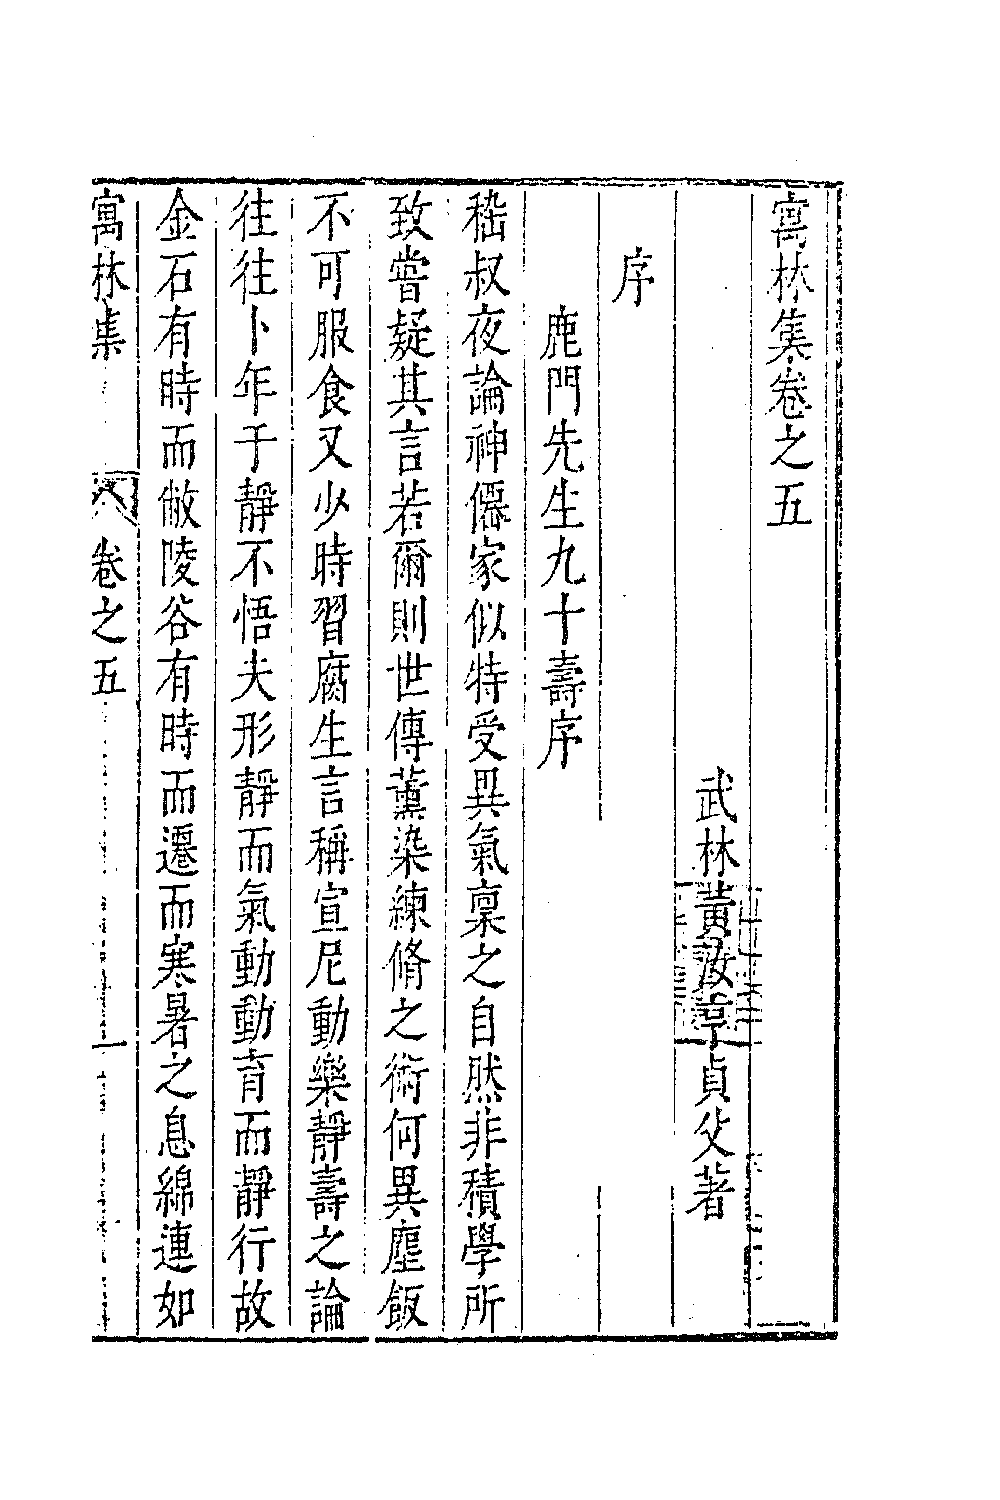 寓林集卷之五
武林黃汝亨貞父著
序
鹿門先生九十壽序
嵇叔夜論神僊家似特受異氣稟之自然非積學所
致嘗疑其言若爾則世傳薰染練脩之術何異塵飯
不可服食又少時習腐生言稱宣尼動樂靜壽之論
往往卜年于靜不悟夫形靜而氣動動育而靜行故
金石有時而敝陵谷有時而遷而寒暑之息綿連如
寓林集 卷之五 一